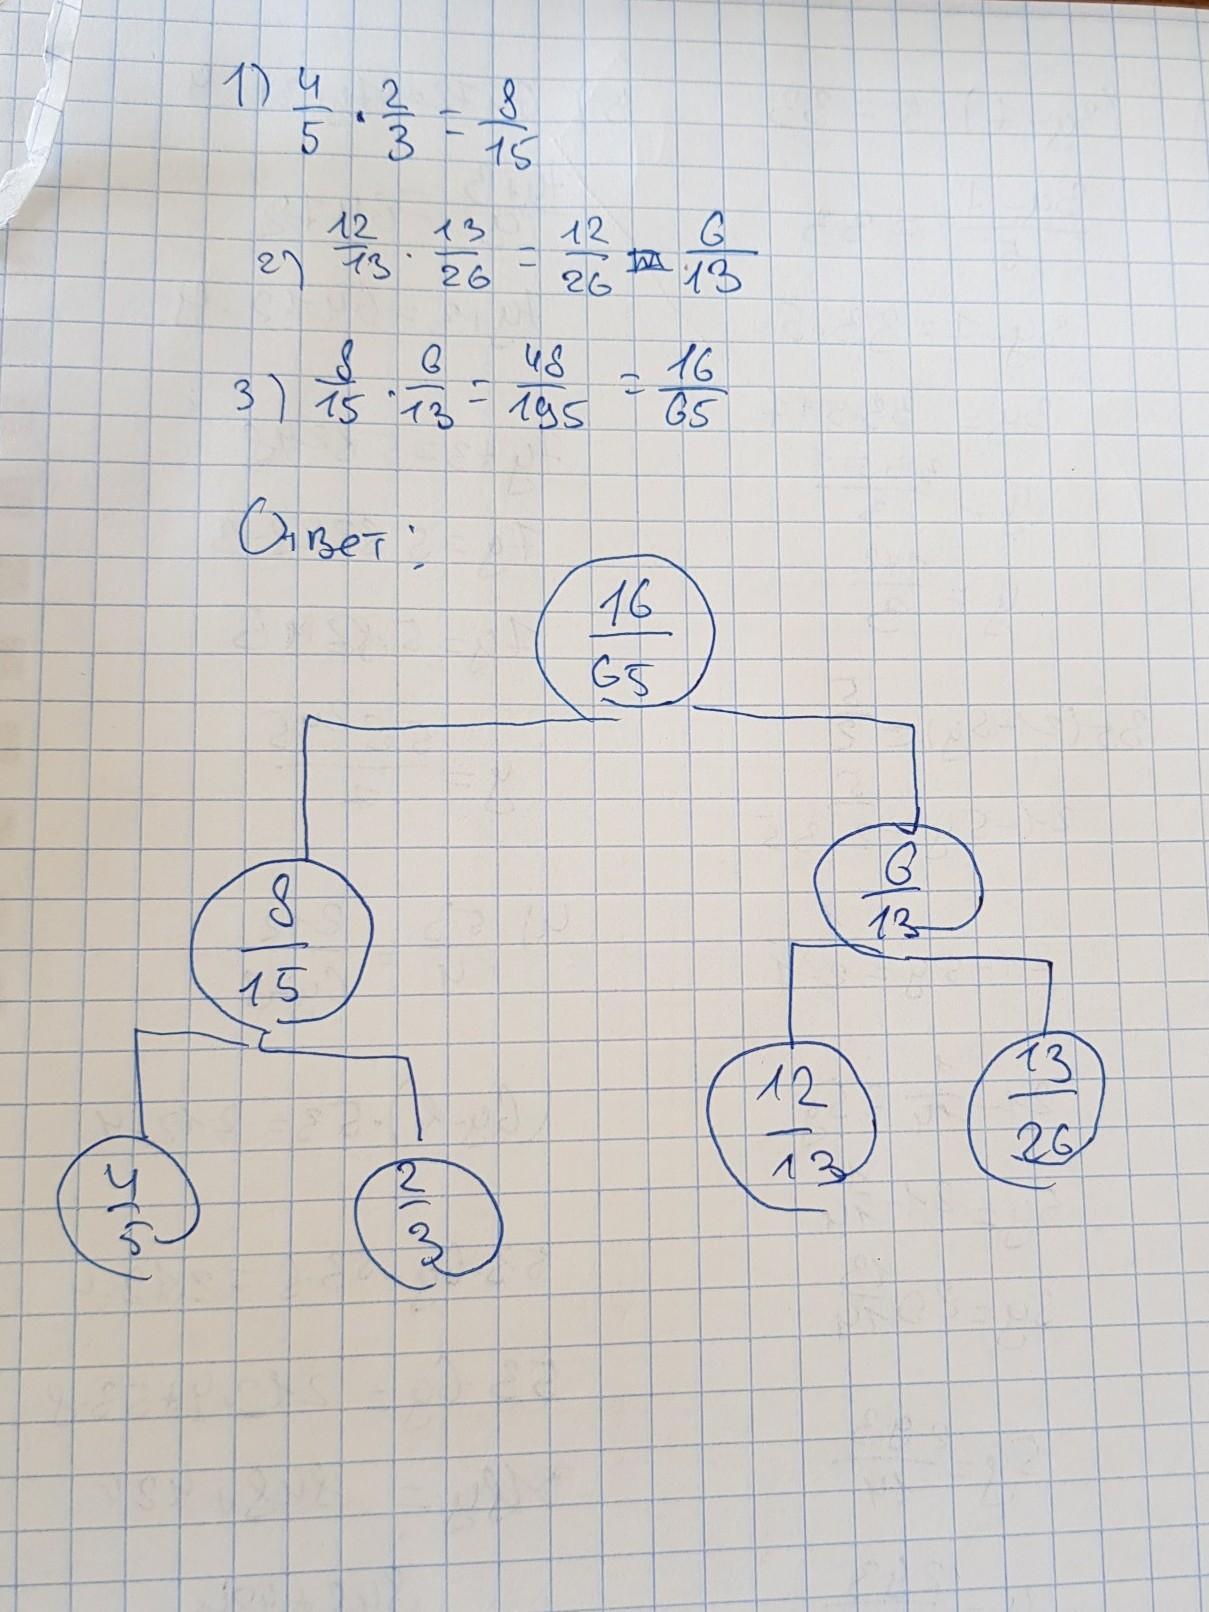 1) 4/5 · 2/3 = 8/15
2) 12/13 · 13/26 = 12/26 = 6/13
3) 8/15 · 6/13 = 48/195 = 16/65
Ответ:
16/65
8/15 6/13
4/5 2/3 12/13 13/26